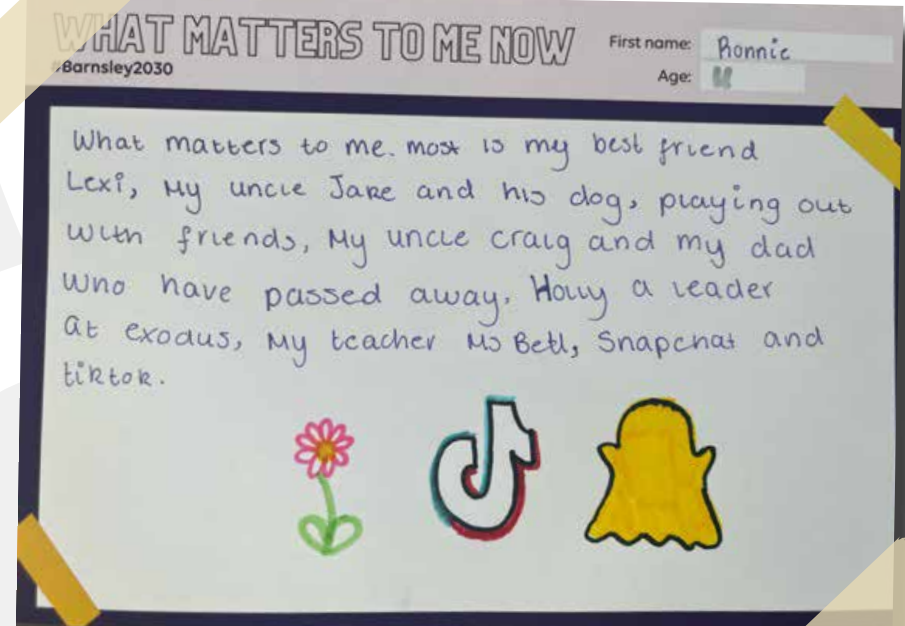 WHAT MATTERS TO ME NOW
#Barnsley2030
First name: Ronnie
Age:
What matters to me. most is my best friend
Lexi, My uncle Jake and his dog, playing out
with friends, My uncle craig and my dad
who have passed away. Holly a leader
at exodus, My teacher Ms Bell, Snapchat and
tiktok.